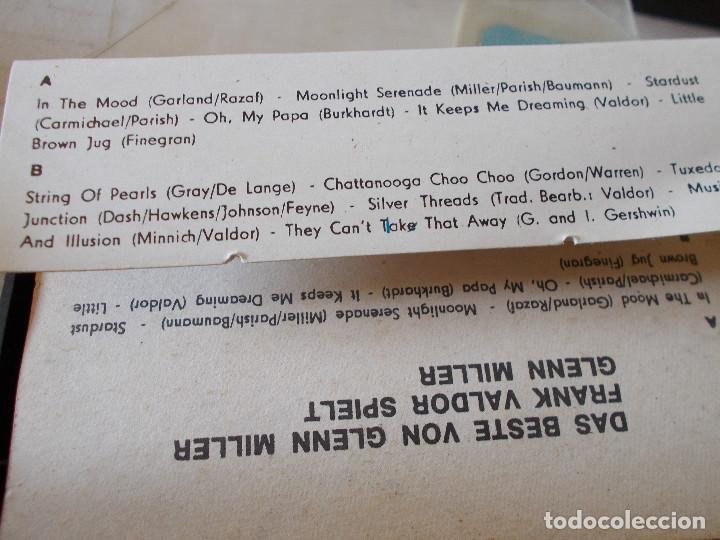 A
In The Mood (Garland/Razaf) - Moonlight Serenade (Miller/Parish/Baumann) - Stardust
(Carmichael/Parish) - Oh, My Papa (Burkhardt) - It Keeps Me Dreaming (Valdor) - Little
Brown Jug (Finegran)
B
String Of Pearls (Gray/De Lange) - Chattanooga Choo Choo (Gordon/Warren) - Tuxedo
Junction (Dash/Hawkens/Johnson/Feyne) - Silver Threads (Trad. Bearb.: Valdor) - Musi
And Illusion (Minnich/Valdor) - They Can't Take That Away (G. and I. Gershwin)
DAS BESTE VON GLENN MILLER
FRANK VALDOR SPIELT
GLENN MILLER
A
In The Mood (Garland/Razaf) - Moonlight Serenade (Miller/Parish/Baumann) - Stardust
(Carmichael/Parish) - Oh, My Papa (Burkhardt) - It Keeps Me Dreaming (Valdor) - Little
Brown Jug (Finegran)
B
todocoleccion.net